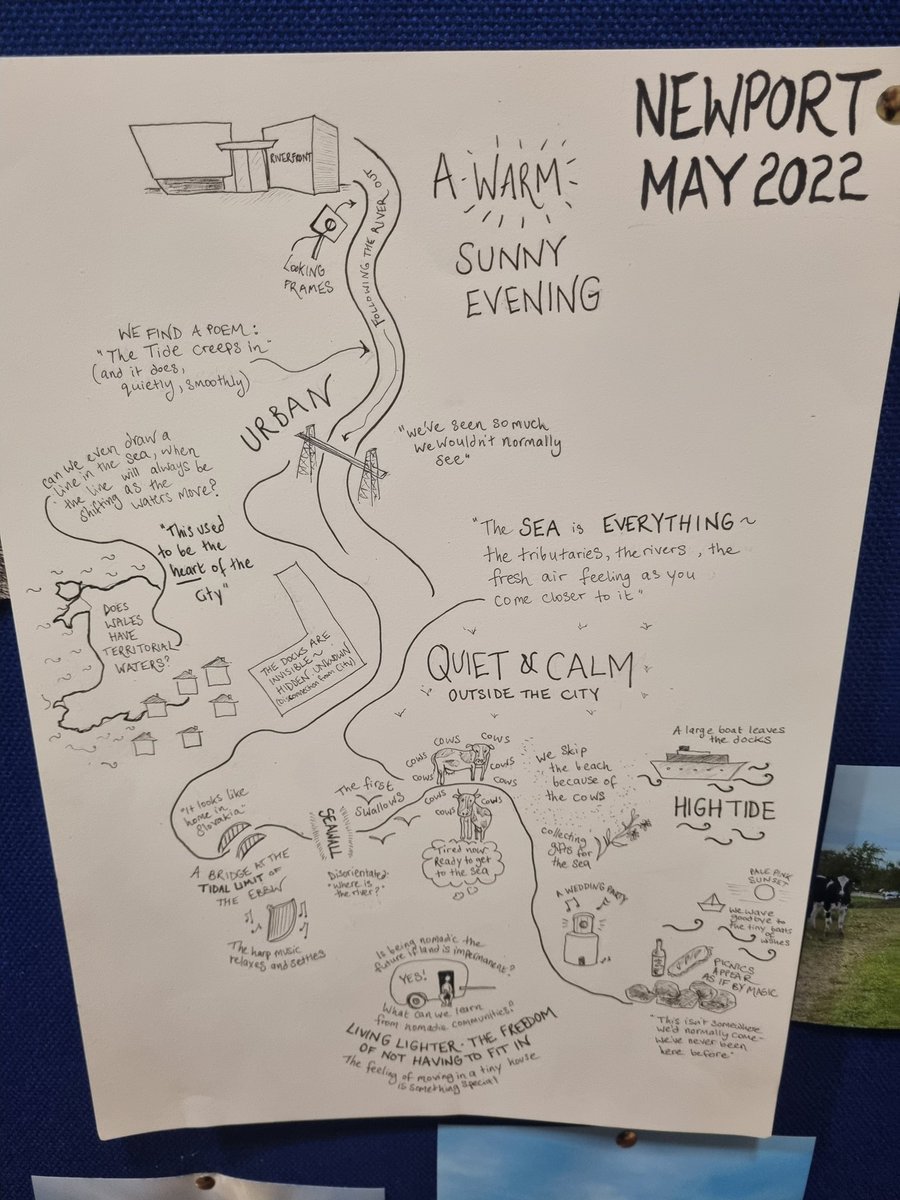 NEWPORT
MAY 2022
RIVERFRONT
A WARM
SUNNY
EVENING
LOOKING
FRAMES
FOLLOWING THE RIVER OUT
WE FIND A POEM:
"The Tide creeps in"
(and it does,
quietly, smoothly)
URBAN
"we've seen so much
we wouldn't normally
see"
can we even draw a
line in the sea, when
the line will always be
shifting as the
waters move?
"This used
to be the
heart of the
city"
DOES
WALES
HAVE
TERRITORIAL
WATERS?
THE DOCKS ARE
INVISIBLE ~
HIDDEN UNKNOWN
(Disconnection from City)
"The SEA is EVERYTHING ~
the tributaries, the rivers, the
fresh air feeling as you
come closer to it"
QUIET & CALM
OUTSIDE THE CITY
"It looks like
home in
Slovakia"
A BRIDGE AT THE
TIDAL LIMIT OF
THE EBBW
The harp music
relaxes and settles
SEAWALL
Disorientated:
"where is
the river?"
The first
swallows
COWS
COWS
COWS
COWS
COWS
COWS
COWS
COWS
COWS
COWS
Tired now
Ready to get
to the sea
we skip
the beach
because of
the cows
collecting
gifts for
the sea
A large boat leaves
the docks
HIGH TIDE
A WEDDING PARTY
PALE PINK
SUNSET
we wave
goodbye to
the tiny boats
of
wishes
PICNICS
APPEAR
AS IF BY MAGIC
"This isn't somewhere
we'd normally come~
we've never been
here before"
Is being nomadic the
future if land is impermanent?
YES!
What can we learn
from nomadic communities?
LIVING LIGHTER · THE FREEDOM
OF NOT HAVING TO FIT IN
The feeling of moving in a tiny house
is something special